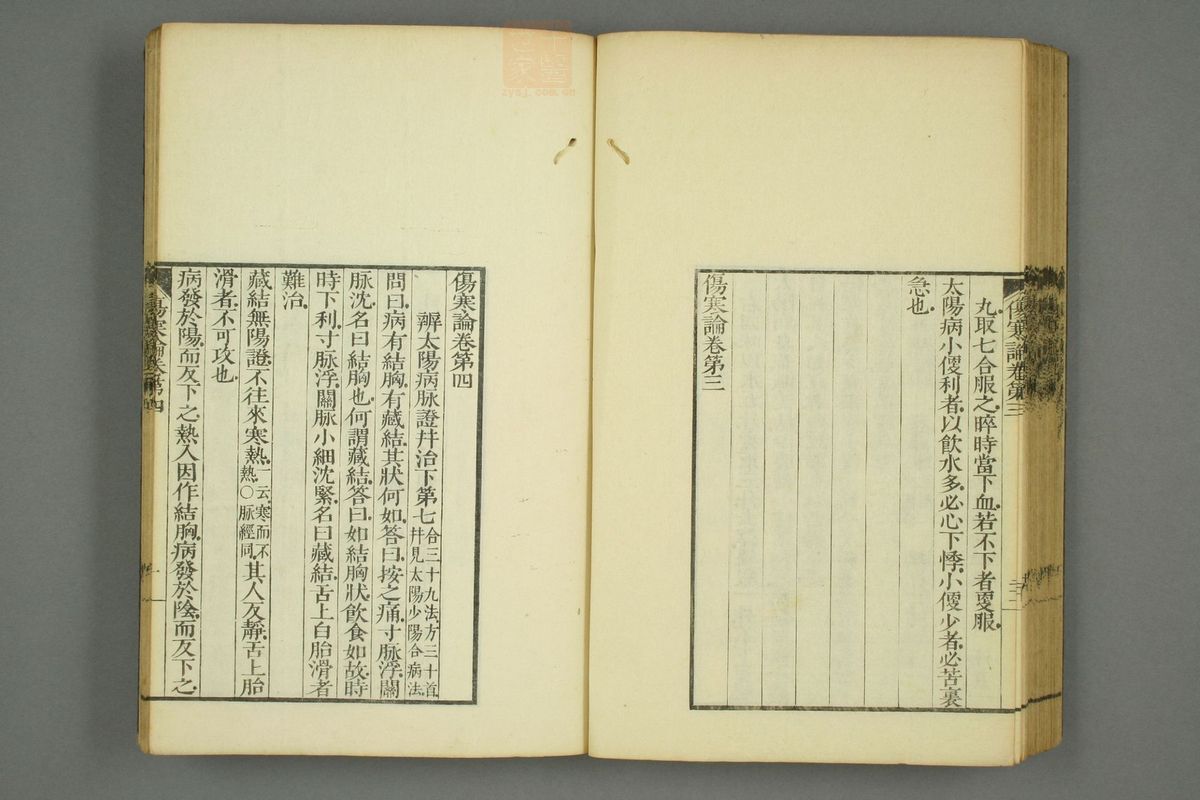 傷寒論卷第三
丸取七合服之晬時當下血若不下者更服
太陽病小便利者以飲水多必心下悸小便少者必苦裏
急也
傷寒論卷第三
傷寒論卷第四
辨太陽病脉證幷治下第七 合三十九法方三十首
幷見太陽少陽合病法
問曰病有結胸有藏結其狀何如答曰按之痛寸脉浮關
脉沈名曰結胸也何謂藏結答曰如結胸狀飲食如故時
時下利寸脉浮關脉小細沈緊名曰藏結舌上白胎滑者
難治
藏結無陽證不往來寒熱 一云寒而不
熱○脉經同 其人反靜舌上胎
滑者不可攻也
病發於陽而反下之熱入因作結胸病發於陰而反下之
傷寒論卷第四
中醫世家
zysj.com.cn